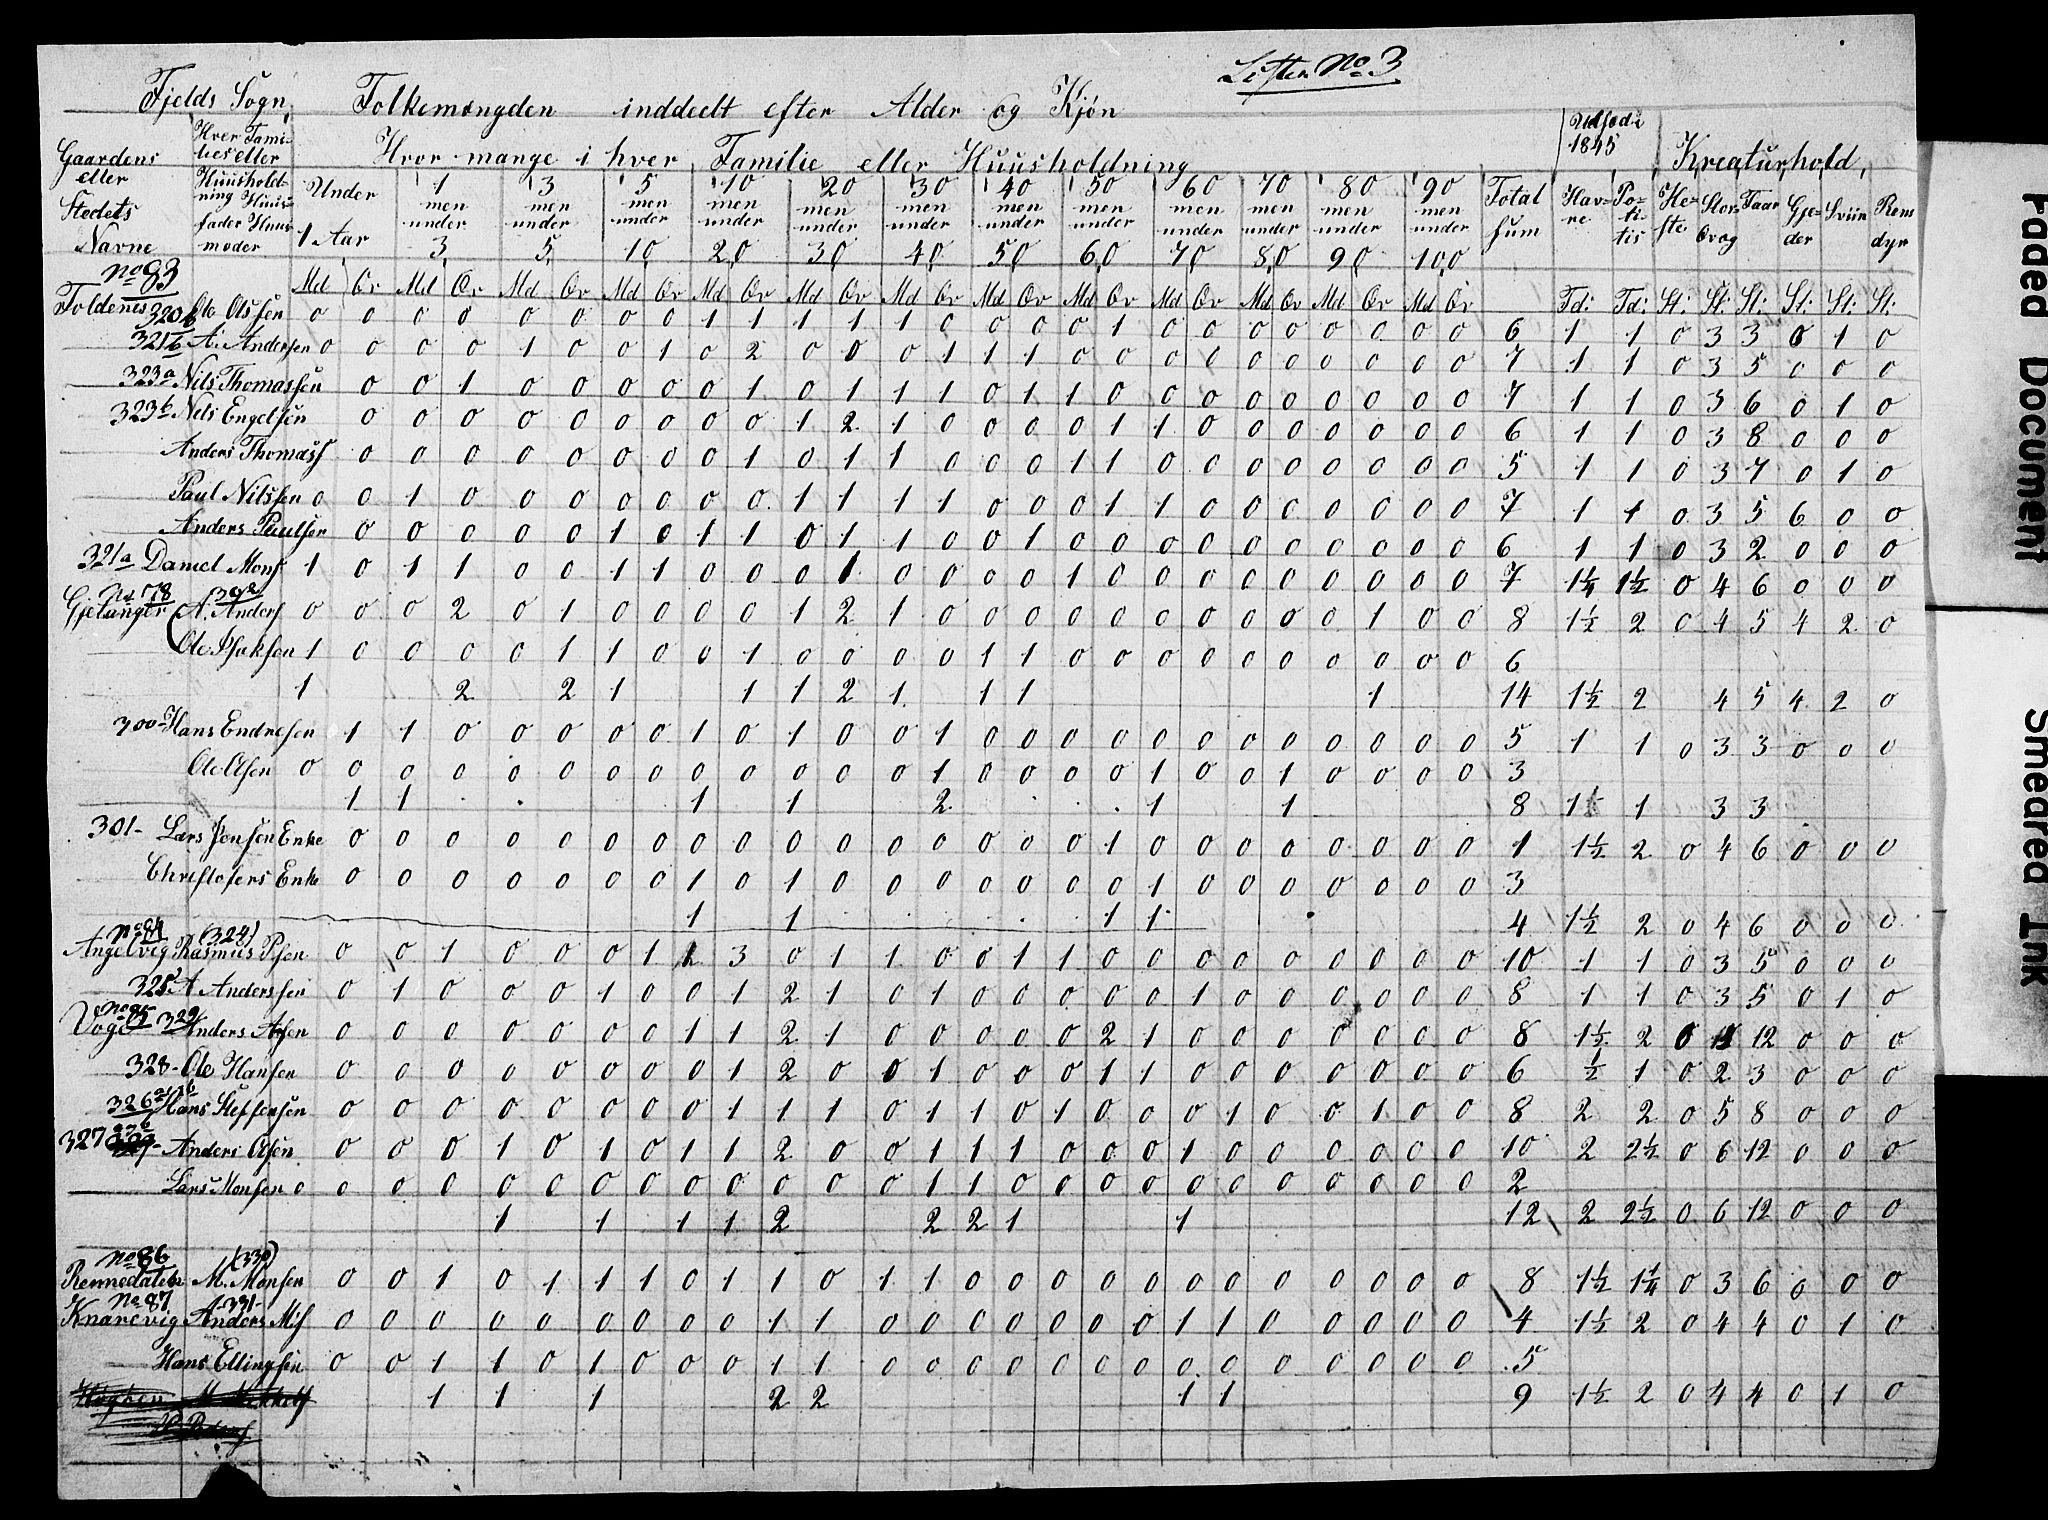 Listen No 3
Fjelds Sogn Folkemængden inddeelt efter Alder og Kjøn
Hvor mange i hver Familie eller Huusholdning
Udsæd i 1845 Kreaturhold
Gaardens eller Stedets Navne
Hver Families eller Huusholdning Huusfader Huusmoder
Under 1 Aar
1 men under 3
3 men under 5
5 men under 10
10 men under 20
20 men under 30
30 men under 40
40 men under 50
50 men under 60
60 men under 70
70 men under 80
80 men under 90
90 men under 100
Total sum
Havre Potetis Heste Stor Qvæg Faar Gjeder Sviin Rensdyr
No 83
Md Qv Md Qv Md Qv Md Qv Md Qv Md Qv Md Qv Md Qv Md Qv Md Qv Md Qv Md Qv Md Qv Td: Td: St: St: St: St: St: St:
Foldenes 320b Ole Olssen 0 0 0 0 0 0 0 0 1 1 1 1 1 0 0 0 0 1 0 0 0 0 0 0 0 0 6 1 1 0 3 3 0 1 0
321b A. Andersen 0 0 0 0 1 0 0 1 0 2 0 0 0 1 1 1 0 0 0 0 0 0 0 0 0 0 7 1 1 0 3 5 0 0 0
323a Nils Thomassen 0 0 1 0 0 0 0 0 1 0 1 1 1 0 1 1 0 0 0 0 0 0 0 0 0 0 7 1 1 0 3 6 0 1 0
323b Nels Engelsen 0 0 0 0 0 0 0 0 0 1 2 1 0 0 0 0 1 1 0 0 0 0 0 0 0 0 6 1 1 0 3 8 0 0 0
Anders Thomass 0 0 0 0 0 0 0 0 1 0 1 1 0 0 0 1 1 0 0 0 0 0 0 0 0 5 1 1 0 3 7 0 1 0
Paul Nilssen 0 0 1 0 0 0 0 0 0 0 1 1 1 1 0 0 1 1 0 0 0 0 0 0 0 0 7 1 1 0 3 5 6 0 0
Anders Paulsen 0 0 0 0 0 1 0 1 1 0 1 1 0 0 1 0 0 0 0 0 0 0 0 0 0 6 1 1 0 3 2 0 0 0
321a Daniel Mons 1 0 1 1 0 0 1 1 0 0 0 1 0 0 0 0 1 0 0 0 0 0 0 0 0 0 7 1¼ 1½ 0 4 6 0 0 0
No 78
Gjelanger A. Anders 0 0 0 2 0 1 0 0 0 0 1 2 1 0 0 0 0 0 0 0 0 0 0 1 0 0 8 1½ 2 0 4 5 4 2 0
1 0 0 0 0 1 1 0 0 1 0 0 0 0 1 1 0 0 0 0 0 0 0 0 0 0 6
1 2 2 1 1 1 2 1 1 1 1 14 1½ 2 4 5 4 2 0
300 Hans Endresen 1 1 0 0 0 0 0 1 0 1 0 0 1 0 0 0 0 0 0 0 0 0 0 0 0 5 1 1 0 3 3 0 0 0
Ole Olsen 0 0 0 0 0 0 0 0 0 0 0 0 0 1 0 0 0 0 1 0 0 1 0 0 0 0 3
1 1 1 1 2 1 1 8 1½ 1 3 3
301 Lars Jensen Enke 0 0 0 0 0 0 0 0 0 0 0 0 0 0 0 0 1 0 0 0 0 0 0 0 0 1 1½ 2 0 4 6 0 0 0
Christofers Enke 0 0 0 0 0 0 0 1 0 1 0 0 0 0 0 0 0 1 0 0 0 0 0 0 0 3
1 1 1 1 4 1½ 2 0 4 6 0 0 0
No 84 (324)
Angelvig Rasmus 0 0 1 0 0 0 1 2 3 0 1 1 0 0 1 1 0 0 0 0 0 0 0 0 0 10 1 1 0 3 5 0 0 0
325 A Anderssen 0 1 0 0 0 1 0 0 1 2 1 0 1 0 0 0 0 0 1 0 0 0 0 0 0 8 1 1 0 3 5 0 1 0
No 85
329 Anders 0 0 0 0 0 0 0 1 1 2 1 0 0 0 0 0 2 1 0 0 0 0 0 0 0 8 1½ 2 0 12 0 0 0
328 Ole Hansen 0 0 0 0 0 0 0 0 1 2 0 0 1 0 0 0 1 1 0 0 0 0 0 0 0 6 ½ 1 0 2 3 0 0 0
326 Hans Steffensen 0 0 0 0 0 0 0 0 1 1 1 0 1 1 0 1 0 0 0 1 0 0 1 0 0 8 2 2 0 5 8 0 0 0
327 Anders Olsen 0 0 0 1 0 1 0 1 1 2 0 0 1 1 1 0 0 0 1 0 0 0 0 0 0 10 2 2½ 0 6 12 0 0 0
Lars Monsen 0 0 0 0 0 0 0 0 0 0 0 0 0 1 1 0 0 0 0 0 0 0 0 0 0 0 2
1 1 1 1 2 2 2 1 1 12 2 2½ 0 6 12 0 0 0
No 86 (330)
Rennedalen M. Monsen 0 0 1 0 1 1 1 0 1 1 0 1 1 0 0 0 0 0 0 0 0 0 0 0 0 8 1½ 1¼ 0 3 6 0 0 0
No 87 331
Knarevig Anders Nils 0 0 0 0 0 0 0 0 0 1 1 0 0 0 0 0 0 0 1 1 0 0 0 0 0 4 1½ 2 0 4 4 0 1 0
Hans Ellingsen 0 0 1 1 0 1 0 0 0 1 1 0 0 0 0 0 0 0 0 0 0 0 0 0 0 5
1 1 1 2 2 1 1 9 1½ 2 0 4 4 0 1 0
Faded Document
Smeared Ink